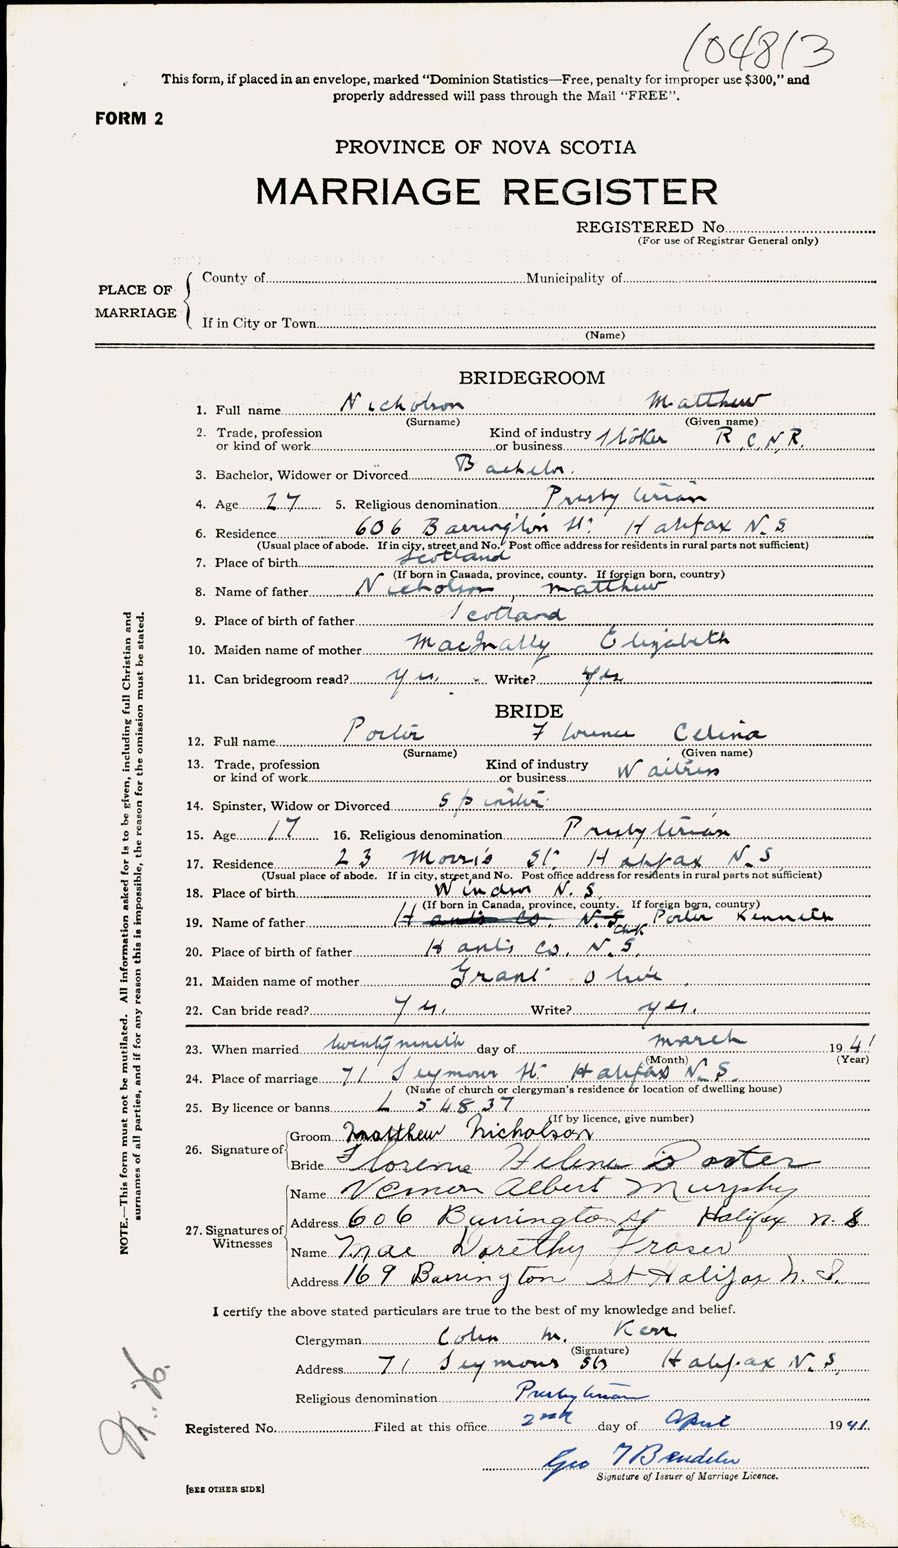 104813
This form, if placed in an envelope, marked "Dominion Statistics—Free, penalty for improper use $300," and
properly addressed will pass through the Mail "FREE".
FORM 2
PROVINCE OF NOVA SCOTIA
MARRIAGE REGISTER
REGISTERED No
(For use of Registrar General only)
PLACE OF MARRIAGE
County of Municipality of
If in City or Town
(Name)
BRIDEGROOM
1. Full name Nicholson Matthew
(Surname) (Given name)
2. Trade, profession or kind of work Kind of industry or business Stoker R.C.N.R.
3. Bachelor, Widower or Divorced Bachelor.
4. Age 27 5. Religious denomination Presbyterian
6. Residence 606 Barrington St. Halifax N.S
(Usual place of abode. If in city, street and No. Post office address for residents in rural parts not sufficient)
7. Place of birth Scotland
(If born in Canada, province, county. If foreign born, country)
8. Name of father Nicholson, Matthew
9. Place of birth of father Scotland
10. Maiden name of mother MacInally Elizabeth
11. Can bridegroom read? yes. Write? yes
BRIDE
12. Full name Porter Florence Celina
(Surname) (Given name)
13. Trade, profession or kind of work Kind of industry or business Waitress
14. Spinster, Widow or Divorced Spinster
15. Age 17 16. Religious denomination Presbyterian
17. Residence 23 Morris St. Halifax N.S
(Usual place of abode. If in city, street and No. Post office address for residents in rural parts not sufficient)
18. Place of birth Windsor N.S.
(If born in Canada, province, county. If foreign born, country)
19. Name of father Hants Co. N.S Porter Kenneth
20. Place of birth of father Hants Co. N.S.
21. Maiden name of mother Grant Olive
22. Can bride read? Yes. Write? yes.
23. When married twenty nineth day of March 1941
(Month) (Year)
24. Place of marriage 71 Seymour St. Halifax N.S.
(Name of church or clergyman's residence or location of dwelling house)
25. By licence or banns L 54837
(If by licence, give number)
26. Signature of
Groom Matthew Nicholson
Bride Florence Helena Porter
27. Signatures of Witnesses
Name Vernon Albert Murphy
Address 606 Barrington St Halifax N.S
Name Mae Dorethy Fraser
Address 169 Barrington St Halifax N.S.
I certify the above stated particulars are true to the best of my knowledge and belief.
Clergyman Colin M. Kerr
(Signature)
Address 71 Seymour St Halifax N.S,
Religious denomination Presbyterian
Registered No. Filed at this office 2nd day of April 1941.
Geo
Signature of Issuer of Marriage Licence.
[SEE OTHER SIDE]
NOTE.—This form must not be mutilated. All information asked for is to be given, including full Christian and
surnames of all parties, and if for any reason this is impossible, the reason for the omission must be stated.